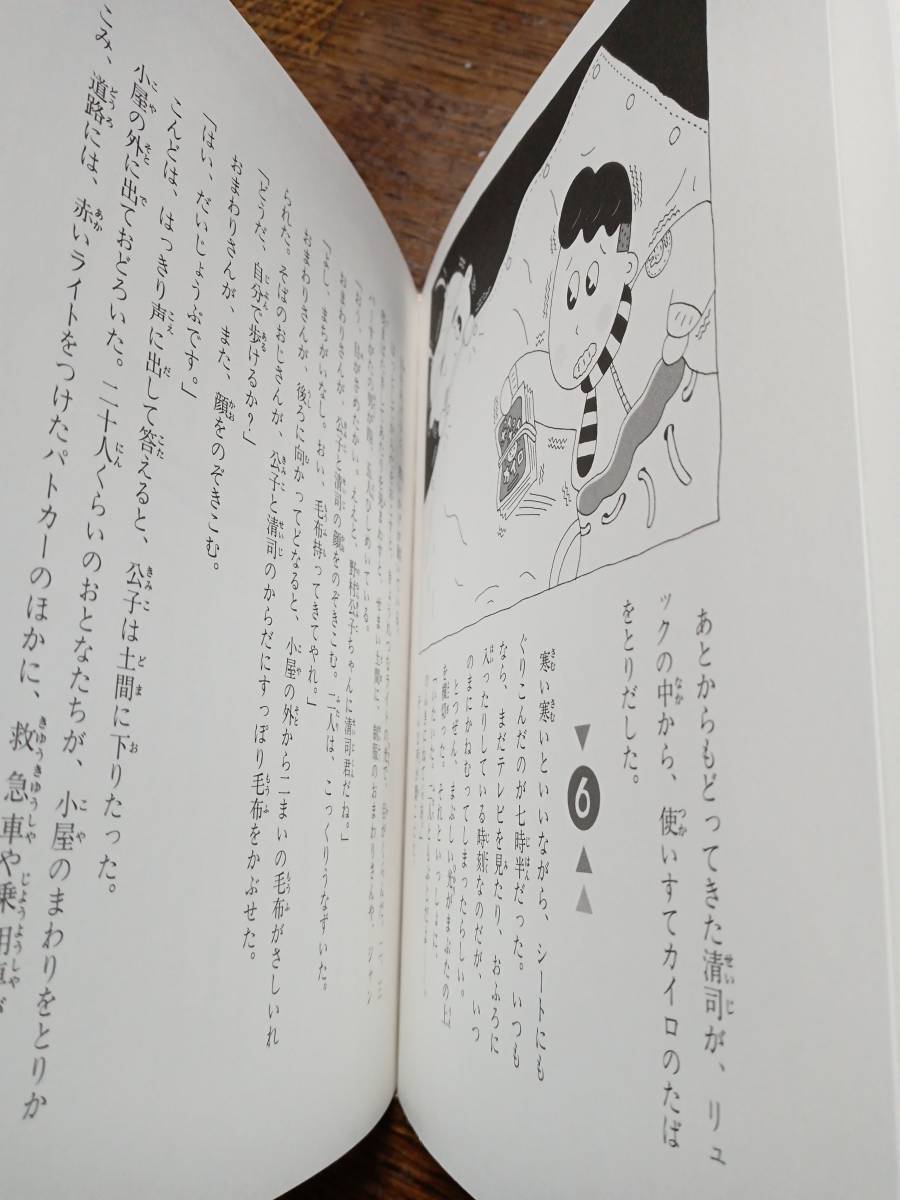 あとからもどってきた清司が、リュ
ックの中から、使いすてカイロのたば
をとりだした。
6
寒い寒いといいながら、シートにも
ぐりこんだのが七時半だった。いつも
なら、まだテレビを見たり、おふろに
入ったりしている時刻なのだが、いつ
のまにかねむってしまったらしい。
とつぜん、まぶしい光がまぶたの上
を横切った。それといっしょに、
「いたいた。
「おう、目がさめたかい。ええと、野村公子ちゃんに清司君だね。」
おまわりさんが、公子と清司の顔をのぞきこむ。二人は、こっくりうなずいた。
「よし、まちがいなし。おい、毛布持ってきてやれ。」
おまわりさんが、後ろに向かってどなると、小屋の外から二まいの毛布がさしいれ
られた。そばのおじさんが、公子と清司のからだにすっぽり毛布をかぶせた。
「どうだ、自分で歩けるか?」
おまわりさんが、また、顔をのぞきこむ。
「はい、だいじょうぶです。」
こんどは、はっきり声に出して答えると、公子は土間に下りたった。
小屋の外に出ておどろいた。二十人くらいのおとなたちが、小屋のまわりをとりか
こみ、道路には、赤いライトをつけたパトカーのほかに、救急車や乗用車が
カイロ